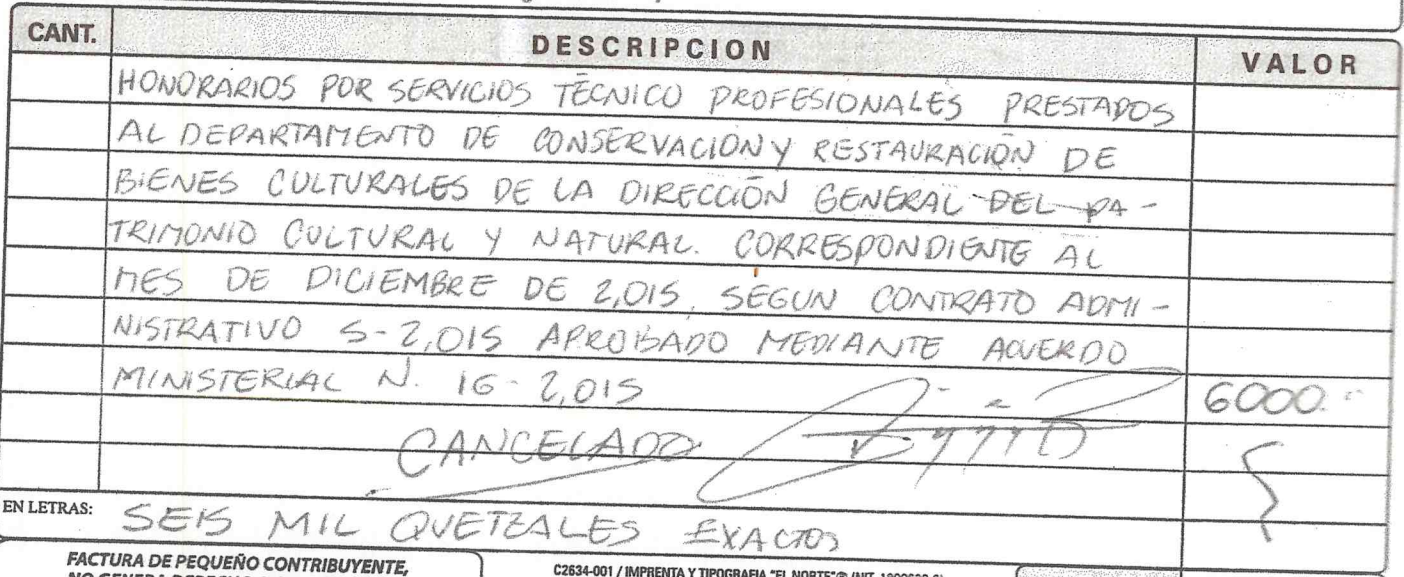 CANT. DESCRIPCION VALOR
HONORARIOS POR SERVICIOS TÉCNICO PROFESIONALES PRESTADOS
AL DEPARTAMENTO DE CONSERVACIÓN Y RESTAURACIÓN DE
BIENES CULTURALES DE LA DIRECCIÓN GENERAL DEL PA-
TRIMONIO CULTURAL Y NATURAL. CORRESPONDIENTE AL
MES DE DICIEMBRE DE 2,015, SEGUN CONTRATO ADMI-
NISTRATIVO 5-2,015 APROBADO MEDIANTE ACUERDO
MINISTERIAL N. 16-2,015 6000.-
CANCELADO
EN LETRAS: SEIS MIL QUETZALES EXACTOS
FACTURA DE PEQUEÑO CONTRIBUYENTE,
C2634-001 / IMPRENTA Y TIPOGRAFIA "EL NORTE"